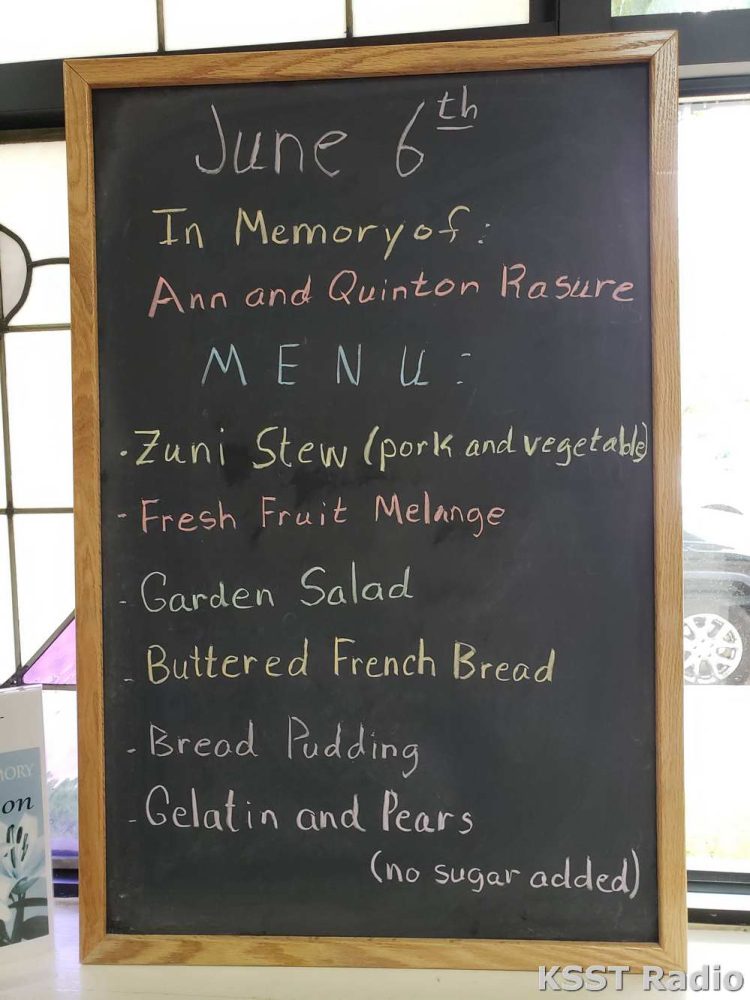 June 6th
In Memory of:
Ann and Quinton Rasure
MENU:
· Zuni Stew (pork and vegetable)
- Fresh Fruit Melange
- Garden Salad
- Buttered French Bread
- Bread Pudding
- Gelatin and Pears
(no sugar added)
MORY
on
KSST Radio